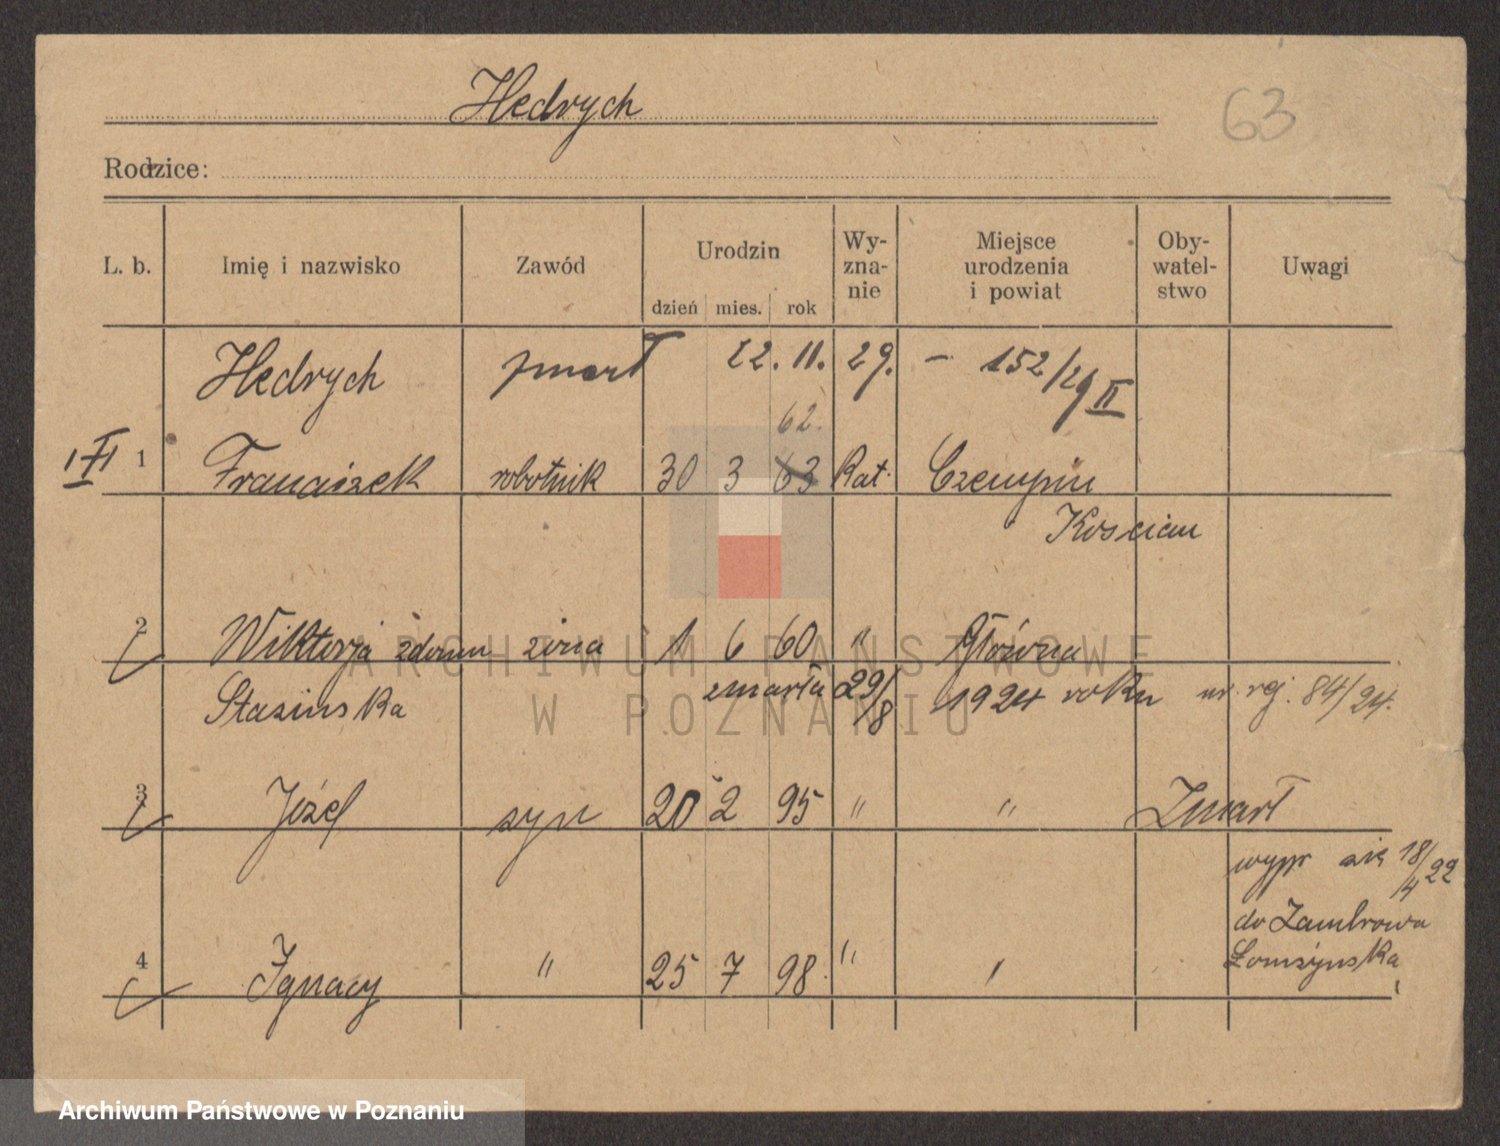 Hedrych
63
Rodzice:
L. b. Imię i nazwisko Zawód Urodzin dzień mies. rok Wy-zna-nie Miejsce urodzenia i powiat Oby-watel-stwo Uwagi
Hedrych zmarł 22. 11. 29. – 152/29 II
62.
1 Franciszek robotnik 30 3 63 Kat. Czempin
Kościan
2 Wiktorja zdomu żona 1 6 60 " Główna
Stasinska zmarła 29/8 1924 roku nr. rej. 84/24.
3 Józef syn 20 2 95 " " Zmarł
wypr się 18/4 22
do Zambrowa
Łomżynska
4 Ignacy " 25 7 98. " "
ARCHIWUM PAŃSTWOWE
W POZNANIU
Archiwum Państwowe w Poznaniu